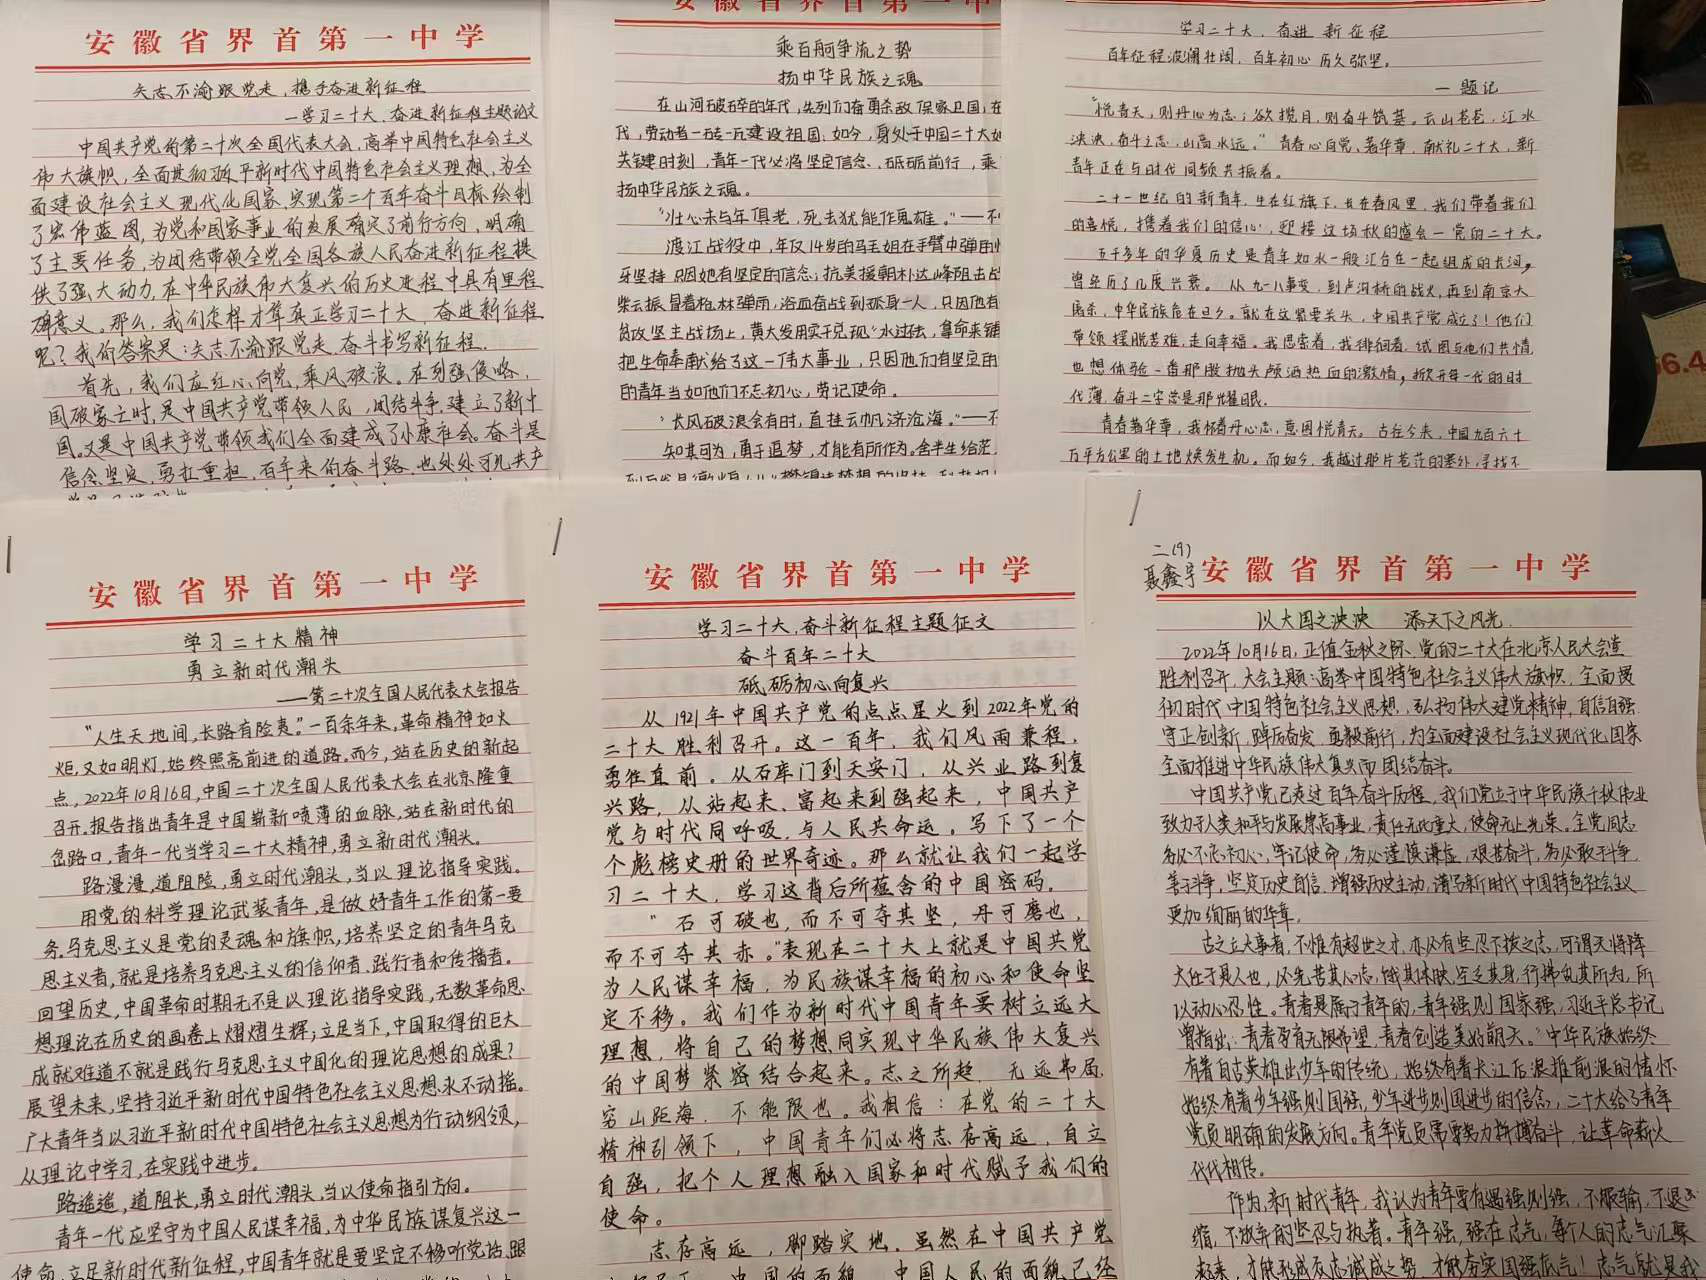 安徽省界首第一中学
矢志不渝跟党走，携手奋进新征程
—学习二十大、奋进新征程主题论文
中国共产党的第二十次全国代表大会，高举中国特色社会主义
伟大旗帜，全面贯彻习近平新时代中国特色社会主义理想，为全
面建设社会主义现代化国家、实现第二个百年奋斗目标绘制
了宏伟蓝图，为党和国家事业的发展确定了前行方向，明确
了主要任务，为团结带领全党全国各族人民奋进新征程提
供了强大动力，在中华民族伟大复兴的历史进程中具有里程
碑意义。那么，我们怎样才算真正学习二十大，奋进新征程
呢？我的答案是：矢志不渝跟党走，奋斗书写新征程。
首先，我们应红心向党，乘风破浪。在列强侵略，
国破家亡时，是中国共产党带领人民，团结斗争，建立了新中
国。又是中国共产党带领我们全面建成了小康社会。奋斗是
信念坚定，勇扛重担，百年来的奋斗路，也处处可见共产
乘百舸争流之势
扬中华民族之魂
在山河破碎的年代，先列们奋勇杀敌保家卫国，在
代，劳动者一砖一瓦建设祖国，如今，身处于中国二十大如
关键时刻，青年一代必将坚定信念、砥砺前行，乘
扬中华民族之魂。
“壮心未与年俱老，死去犹能作鬼雄。”——
渡江战役中，年仅14岁的马毛姐在手臂中弹的
牙坚持，只因她有坚定的信念；抗美援朝朴达峰阻击战
柴云振冒着枪林弹雨，浴血奋战到孤身一人，只因他有
贫攻坚主战场上，黄大发用实干兑现“水过不去，拿命来铺
把生命奉献给了这一伟大事业，只因他们有坚定的
的青年当如他们不忘初心，劳记使命。
“长风破浪会有时，直挂云帆济沧海。”——
知其可为，勇于追梦，才能有所作为。舍半生给茫
学习二十大，奋进新征程
百年征程波澜壮阔，百年初心历久弥坚。
—题记
“悦青天，则丹心为志；欲揽月，则奋斗筑基。云山苍苍，江水
泱泱，奋斗之志，山高水远。”青春心向党，著华章，献礼二十大，新
青年正在与时代同频共振着。
二十一世纪的新青年，生在红旗下，长在春风里，我们带着我们
的喜悦，携着我们的信心，迎接这场秋的盛会—党的二十大。
五千多年的华夏历史是青年如水一般汇合在一起组成的长河，
曾经历了几度兴衰。从九一八事变，到卢沟桥的战火，再到南京大
屠杀，中华民族危在旦夕。就在这紧要关头，中国共产党成立了！他们
带领摆脱苦难，走向幸福。我思索着，我徘徊着，试图与他们共情
也想体验一番那股抛头颅洒热血的激情，掀开每一代的时
代薄，奋斗二字总是那么耀眼。
青春著华章，我怀着丹心志，意图悦青天。古往今来，中国九百六十
万平方公里的土地焕发生机。而如今，我越过那片苍茫的塞外，寻找不
安徽省界首第一中学
学习二十大精神
勇立新时代潮头
——第二十次全国人民代表大会报告
“人生天地间，长路有险夷。”一百余年来，革命精神如火
炬，又如明灯，始终照亮前进的道路。而今，站在历史的新起
点，2022年10月16日，中国二十次全国人民代表大会在北京隆重
召开。报告指出青年是中国崭新喷薄的血脉，站在新时代的
岔路口，青年一代当学习二十大精神，勇立新时代潮头。
路漫漫，道阻险，勇立时代潮头，当以理论指导实践。
用党的科学理论武装青年，是做好青年工作的第一要
务。马克思主义是党的灵魂和旗帜，培养坚定的青年马克
思主义者，就是培养马克思主义的信仰者、践行者和传播者。
回望历史，中国革命时期无不是以理论指导实践，无数革命思
想理论在历史的画卷上熠熠生辉；立足当下，中国取得的巨大
成就难道不就是践行马克思主义中国化的理论思想的成果？
展望未来，坚持习近平新时代中国特色社会主义思想永不动摇。
广大青年当以习近平新时代中国特色社会主义思想为行动纲领，
从理论中学习，在实践中进步。
路遥遥，道阻长，勇立时代潮头，当以使命指引方向。
青年一代应坚守为中国人民谋幸福，为中华民族谋复兴这一
使命，立足新时代新征程，中国青年就是要坚定不移听党话、跟
安徽省界首第一中学
学习二十大，奋斗新征程主题征文
奋斗百年二十大
砥砺初心向复兴
从1921年中国共产党的点点星火到2022年党的
二十大胜利召开。这一百年，我们风雨兼程，
勇往直前。从石库门到天安门，从兴业路到复
兴路，从站起来、富起来到强起来，中国共产
党与时代同呼吸，与人民共命运。写下了一个
个彪榜史册的世界奇迹。那么就让我们一起学
习二十大，学习这背后所蕴含的中国密码。
“石可破也，而不可夺其坚，丹可磨也，
而不可夺其赤。”表现在二十大上就是中国共党
为人民谋幸福，为民族谋幸福的初心和使命坚
定不移。我们作为新时代中国青年要树立远大
理想，将自己的梦想同实现中华民族伟大复兴
的中国梦紧密结合起来。志之所趋，无远弗届，
穷山距海，不能限也。我相信：在党的二十大
精神引领下，中国青年们必将志存高远，自立
自强，把个人理想融入国家和时代赋予我们的
使命。
志存高远，脚踏实地。虽然在中国共产党
二(9)
聂鑫宇
安徽省界首第一中学
以大国之泱泱 添天下之风光
2022年10月16日，正值金秋之际，党的二十大在北京人民大会堂
胜利召开，大会主题：高举中国特色社会主义伟大旗帜，全面贯
彻时代中国特色社会主义思想，弘扬伟大建党精神，自信自强、
守正创新，踔厉奋发、勇毅前行，为全面建设社会主义现代化国家
全面推进中华民族伟大复兴而团结奋斗。
中国共产党已走过百年奋斗历程，我们党立于中华民族千秋伟业
致力于人类和平与发展崇高事业，责任无比重大，使命无上光荣。全党同志
务必不忘初心、牢记使命，务必谨慎谦虚、艰苦奋斗，务必敢于斗争、
善于斗争，坚定历史自信，增强历史主动，谱写新时代中国特色社会主义
更加绚丽的华章。
古之立大事者，不惟有超世之才，亦必有坚忍不拔之志，可谓天将降
大任于是人也，必先苦其心志，饿其体肤，空乏其身，行拂乱其所为，所
以动心忍性。青春是属于青年的，青年强则国家强，习近平总书记
曾指出：“青春孕育无限希望，青春创造美好明天。”中华民族始终
有着自古英雄出少年的传统，始终有着长江后浪推前浪的情怀
始终有着少年强则国强，少年进步则国进步的信念，二十大给了青年
党员明确的发展方向。青年党员需要努力拼搏奋斗，让革命薪火
代代相传。
作为新时代青年，我认为青年要有遇强则强，不服输，不退
缩，不放弃的坚忍与执着。青年强，强在志气，每个人的志气汇聚
起来，才能形成众志诚成之势，才能夯实国强底气！志气就是我